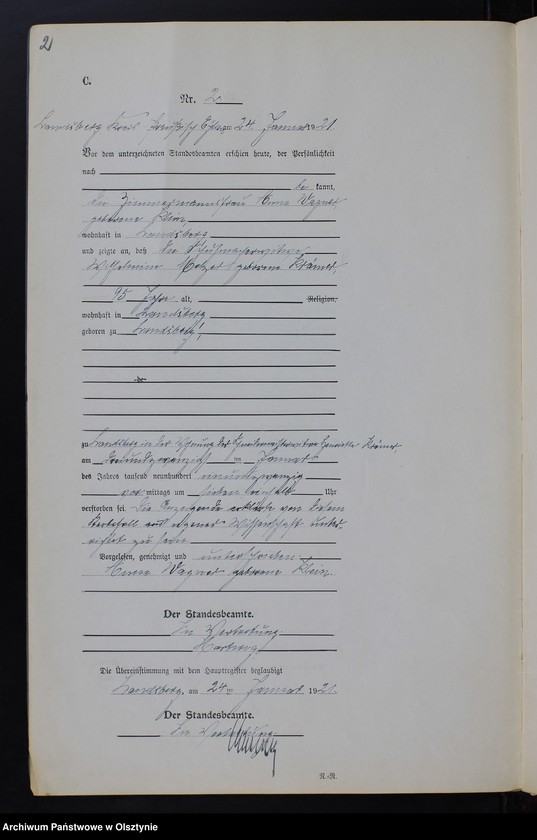 2
C.
Nr. 2
Landsberg Kreis Preußisch Eylau am 24. Januar 1921.
Vor dem unterzeichneten Standesbeamten erschien heute, der Persönlichkeit
nach
be kannt,
die Zimmermannsfrau Anna Wagner
geborene Klein
wohnhaft in Landsberg
und zeigte an, daß die Schuhmacherwitwe
Wilhelmine geborene Krämer
95 Jahre alt, Religion,
wohnhaft in Landsberg
geboren zu Landsberg
zu Landsberg in der Wohnung der Henriette Krämer
am dreiundzwanzigsten Januar
des Jahres tausend neunhundert einundzwanzig
vor mittags um sieben einhalb Uhr
verstorben sei. Die Anzeigende erklärte von diesem
Sterbefall aus eigener Wissenschaft unter-
richtet zu sein.
Vorgelesen, genehmigt und unterschrieben
Anna Wagner geborene Klein.
Der Standesbeamte.
In Vertretung
Hartwig
Die Übereinstimmung mit dem Hauptregister beglaubigt
Landsberg, am 24. Januar 1921.
Der Standesbeamte.
In Vertretung
R.-R.
Archiwum Państwowe w Olsztynie